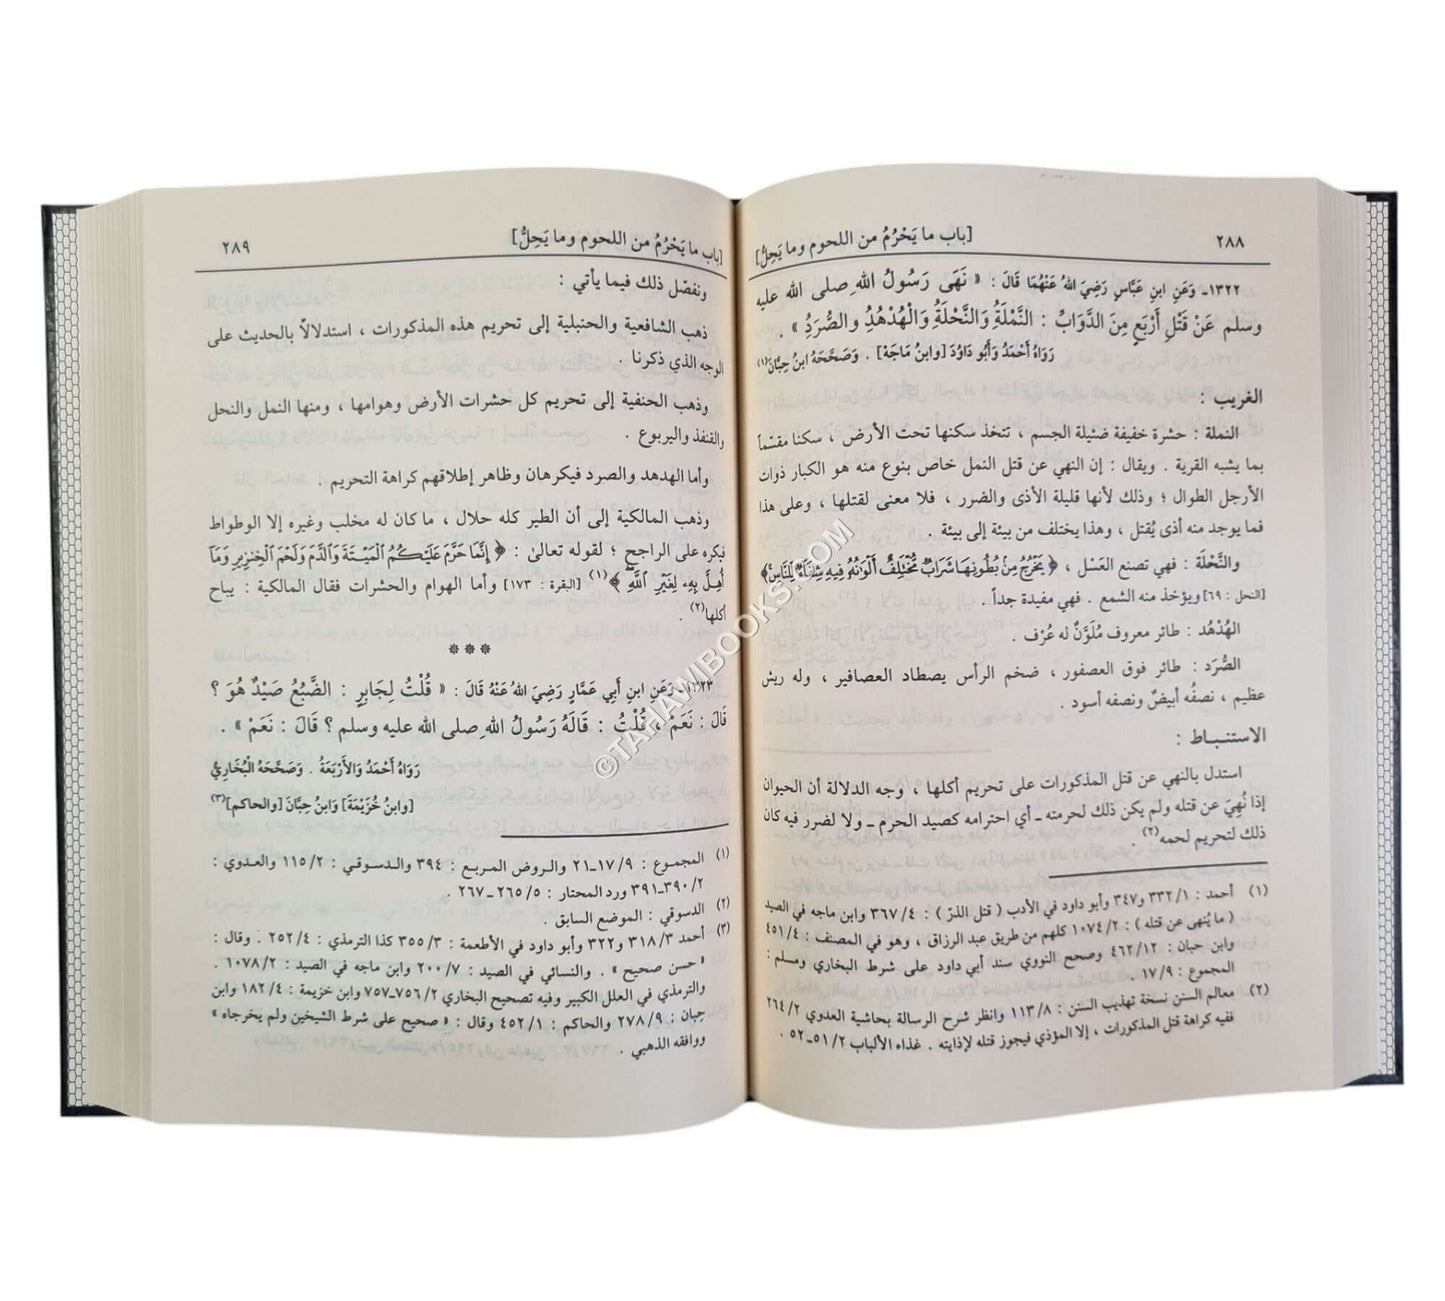 ٢٨٨
[باب ما يَحْرُمُ من اللحوم وما يَحِلُّ]
١٣٢٢ـ وَعَنِ ابنِ عَبَّاسٍ رَضِيَ اللهُ عَنْهُمَا قَالَ : « نَهَى رَسُولُ اللهِ صلى الله عليه
وسلم عَنْ قَتْلِ أَرْبَعٍ مِنَ الدَّوَابِّ : النَّمْلَةِ وَالنَّحْلَةِ وَالْهُدْهُدِ والصُّرَدِ » .
رَوَاهُ أَحْمَدُ وَأَبُو دَاوُدَ [وابنُ مَاجَهْ] . وَصَحَّحَهُ ابنُ حِبَّانَ(١)
الغريب :
النملة : حشرة خفيفة ضئيلة الجسم ، تتخذ سكنها تحت الأرض ، سكنا مقسّماً
بما يشبه القرية . ويقال : إن النهي عن قتل النمل خاص بنوع منه هو الكبار ذوات
الأرجل الطوال ؛ وذلك لأنها قليلة الأذى والضرر ، فلا معنى لقتلها ، وعلى هذا
فما يوجد منه أذى يُقتل ، وهذا يختلف من بيئة إلى بيئة .
والنَّحْلَة : فهي تصنع العَسْل ، ﴿ يَخْرُجُ مِنْ بُطُونِهَا شَرَابٌ مُّخْتَلِفٌ أَلْوَانُهُ فِيهِ شِفَاءٌ لِلنَّاسِ ﴾
[النحل : ٦٩] ويؤخذ منه الشمع . فهي مفيدة جداً .
الهُدْهُد : طائر معروف مُلَوَّنٌ له عُرْف .
الصُّرَد : طائر فوق العصفور ، ضخم الرأس يصطاد العصافير ، وله ريش
عظيم ، نصفُه أبيضٌ ونصفه أسود .
الاستنـبـاط :
استدل بالنهي عن قتل المذكورات على تحريم أكلها ، وجه الدلالة أن الحيوان
إذا نُهِيَ عن قتله ولم يكن ذلك لحرمته ـ أي احترامه كصيد الحرم ـ ولا لضرر فيه كان
ذلك لتحريم لحمه(٢) .
(١) أحمد : ٣٣٢/١ و٣٤٧ وأبو داود في الأدب ( قتل الذرّ ) : ٣٦٧/٤ وابن ماجه في الصيد
( ما يُنهى عن قتله ) : ١٠٧٤/٢ كلهم من طريق عبد الرزاق ، وهو في المصنف : ٤٥١/٤
وابن حبان : ٤٦٢/١٢ وصحح النووي سند أبي داود على شرط البخاري ومسلم :
المجموع : ١٧/٩ .
(٢) معالم السنن نسخة تهذيب السنن : ١١٣/٨ وانظر شرح الرسالة بحاشية العدوي ٢٦٤/٢
ففيه كراهة قتل المذكورات ، إلا المؤذي فيجوز قتله لإذايته . غذاء الألباب ٥١/٢ـ٥٢ .
[باب ما يَحْرُمُ من اللحوم وما يَحِلُّ]
٢٨٩
ونفصّل ذلك فيما يأتي :
ذهب الشافعية والحنبلية إلى تحريم هذه المذكورات ، استدلالاً بالحديث على
الوجه الذي ذكرنا .
وذهب الحنفية إلى تحريم كل حشرات الأرض وهوامها ، ومنها النمل والنحل
والقنفذ واليربوع .
وأما الهدهد والصرد فيكرهان وظاهر إطلاقهم كراهة التحريم .
وذهب المالكية إلى أن الطير كله حلال ، ما كان له مخلب وغيره إلا الوطواط
فيكره على الراجح ؛ لقوله تعالى : ﴿ إِنَّمَا حَرَّمَ عَلَيْكُمُ الْمَيْتَةَ وَالدَّمَ وَلَحْمَ الْخِنزِيرِ وَمَا
أُهِلَّ بِهِ لِغَيْرِ اللَّهِ ﴾(١) [البقرة : ١٧٣] وأما الهوام والحشرات فقال المالكية : يباح
أكلها(٢) .
***
١٣٢٣ـ وَعَنِ ابنِ أَبِي عَمَّارٍ رَضِيَ اللهُ عَنْهُ قَالَ : « قُلْتُ لِجَابِرٍ : الضَّبُعُ صَيْدٌ هُوَ ؟
قَالَ : نَعَمْ ، قُلْتُ : قَالَهُ رَسُولُ اللهِ صلى الله عليه وسلم ؟ قَالَ : نَعَمْ » .
رَوَاهُ أَحْمَدُ وَالأَرْبَعَةُ . وَصَحَّحَهُ الْبُخَارِيُّ
[وابنُ خُزَيْمَةَ] وَابنُ حِبَّانَ [والحاكم](٣)
(١) المجموع : ١٧/٩ـ٢١ والروض المربـع : ٣٩٤ والدسوقي : ١١٥/٢ والعدوي :
٣٩٠/٢ـ٣٩١ ورد المحتار : ٢٦٥/٥ـ٢٦٧ .
(٢) الدسوقي : الموضع السابق .
(٣) أحمد ٣١٨/٣ و٣٢٢ وأبو داود في الأطعمة : ٣٥٥/٣ كذا الترمذي : ٢٥٢/٤ . وقال :
« حسن صحيح » . والنسائي في الصيد : ٢٠٠/٧ وابن ماجه في الصيد : ١٠٧٨/٢ .
والترمذي في العلل الكبير وفيه تصحيح البخاري ٧٥٦/٢ـ٧٥٧ وابن خزيمة : ١٨٢/٤ وابن
حِبان : ٢٧٨/٩ والحاكم : ٤٥٢/١ وقال : « صحيح على شرط الشيخين ولم يخرجاه »
ووافقه الذهبي .
©TAHAMIBOOKS.COM